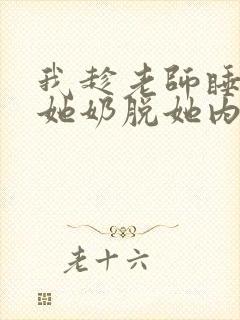 我趁老師睡
她奶脫她內
老十六